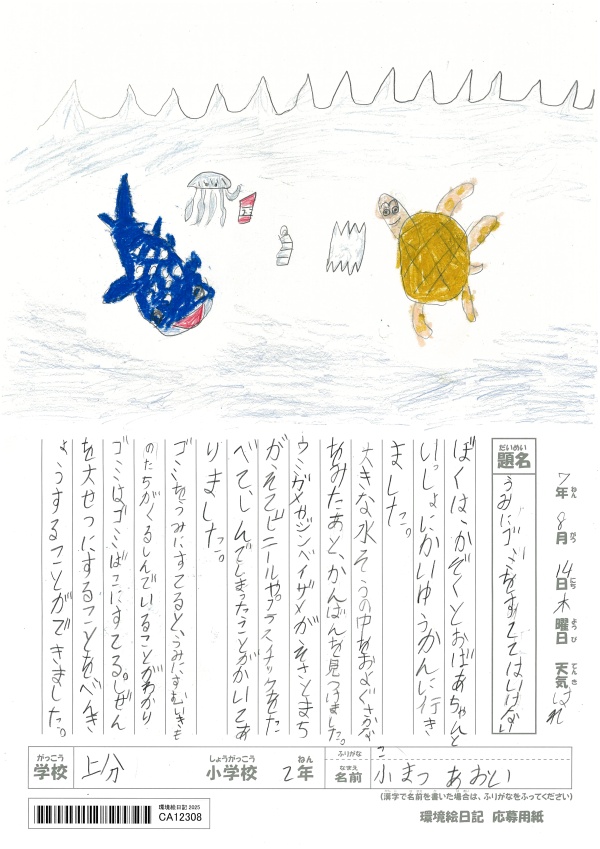 7年 8月 14日 木曜日 天気 はれ
ねん がつ にち ようび てんき
だいめい
題名
うみにゴミをすててはいけない
ぼくは、かぞくとおばあちゃんと
いっしょにかいゆうかんに行き
ました。
大きな水そうの中をおよぐさかな
をみたあと、かんばんを見つけました。
ウミガメやジンベイザメがえさとまち
がえてビニールやプラスチックをた
べて、しんでしまったことがかいてあ
りました。
ゴミをうみにすてると、うみにすむいきも
のたちがくるしんでいることがわかり
ゴミはゴミばこにすてる。しぜん
を大せつにすることをべんき
ょうすることができました。
がっこう
学校
上分
しょうがっこう
小学校
2年
ねん
ふりがな
こ
なまえ
名前
小まつ あおい
(漢字で名前を書いた場合は、ふりがなをふってください)
環境絵日記 2025
CA12308
環境絵日記 応募用紙